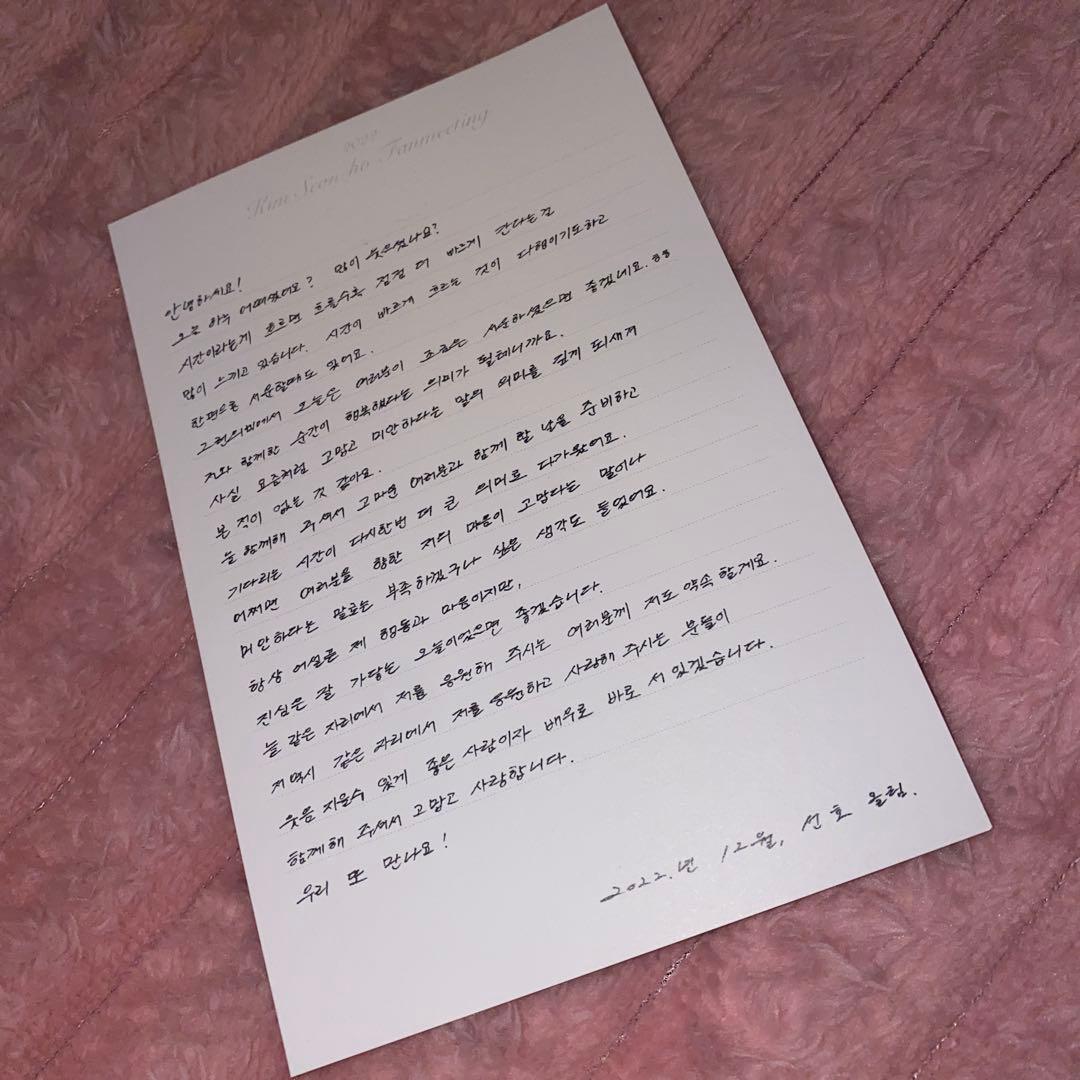 2022
Kim Seon ho Fanmeeting
안녕하세요!
오늘 하루 어떠셨어요? 많이 웃으셨나요?
시간이라는게 흐르면 흐를수록 점점 더 빠르게 간다는걸
많이 느끼고 있습니다. 시간이 빠르게 흐르는 것이 다행이기도하고
한편으론 서운할때도 있어요.
그런의미에서 오늘은 여러분이 조금은 서운하셨으면 좋겠네요. ㅎㅎ
저와 함께한 순간이 행복했다는 의미가 될테니까요.
사실 요즘처럼 고맙고 미안하다는 말의 의미를 깊게 되새겨
본 적이 없는 것 같아요.
늘 함께해 주셔서 고마운 여러분과 함께 할 날을 준비하고
기다리는 시간이 다시한번 더 큰 의미로 다가왔어요.
어쩌면 여러분을 향한 저의 마음이 고맙다는 말이나
미안하다는 말로는 부족하겠구나 싶은 생각도 들었어요.
항상 어설픈 제 행동과 마음이지만,
진심은 잘 가닿는 오늘이었으면 좋겠습니다.
늘 같은 자리에서 저를 응원해 주시는 여러분께 저도 약속할게요.
저 역시 같은 자리에서 저를 응원하고 사랑해 주시는 분들이
웃음 지을수 있게 좋은 사람이자 배우로 바로 서 있겠습니다.
함께해 주셔서 고맙고 사랑합니다.
우리 또 만나요!
2022.년 12월, 선호 올림.